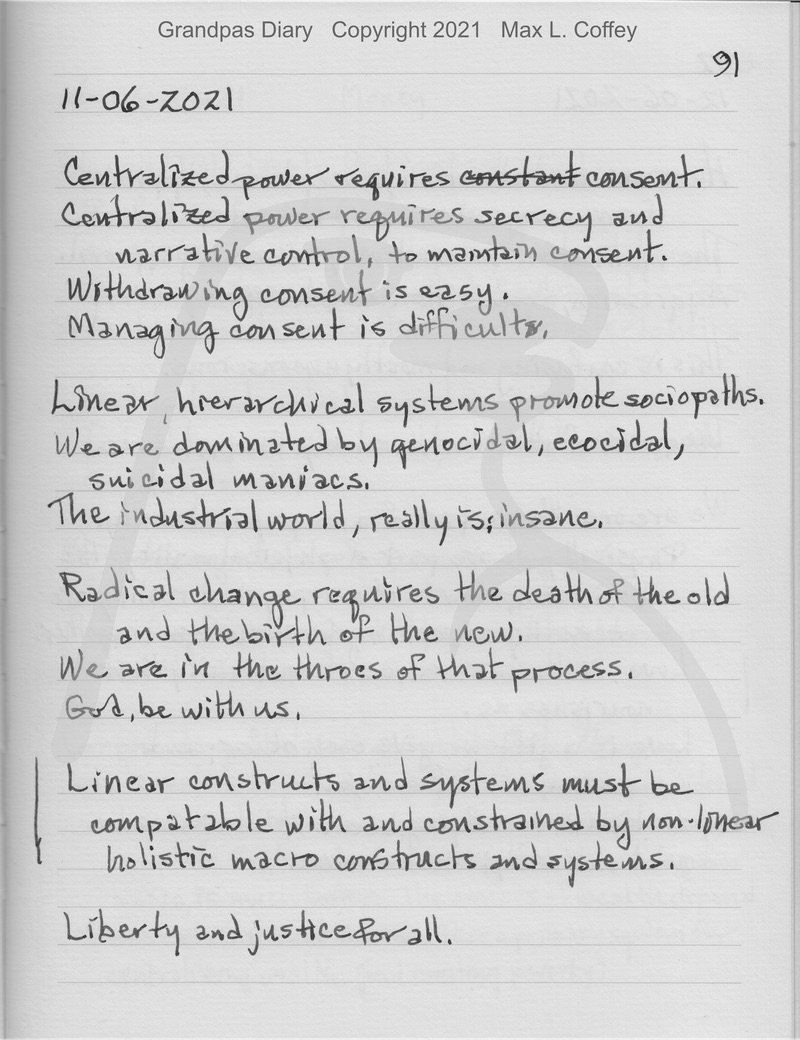 Grandpas Diary Copyright 2021 Max L. Coffey
91
11-06-2021
Centralized power requires constant consent.
Centralized power requires secrecy and
narrative control, to maintain consent.
Withdrawing consent is easy.
Managing consent is difficult.
Linear, hierarchical systems promote sociopaths.
We are dominated by genocidal, ecocidal,
suicidal maniacs.
The industrial world, really is; insane.
Radical change requires the death of the old
and the birth of the new.
We are in the throes of that process.
God, be with us.
Linear constructs and systems must be
compatable with and constrained by non-linear
holistic macro constructs and systems.
Liberty and justice for all.